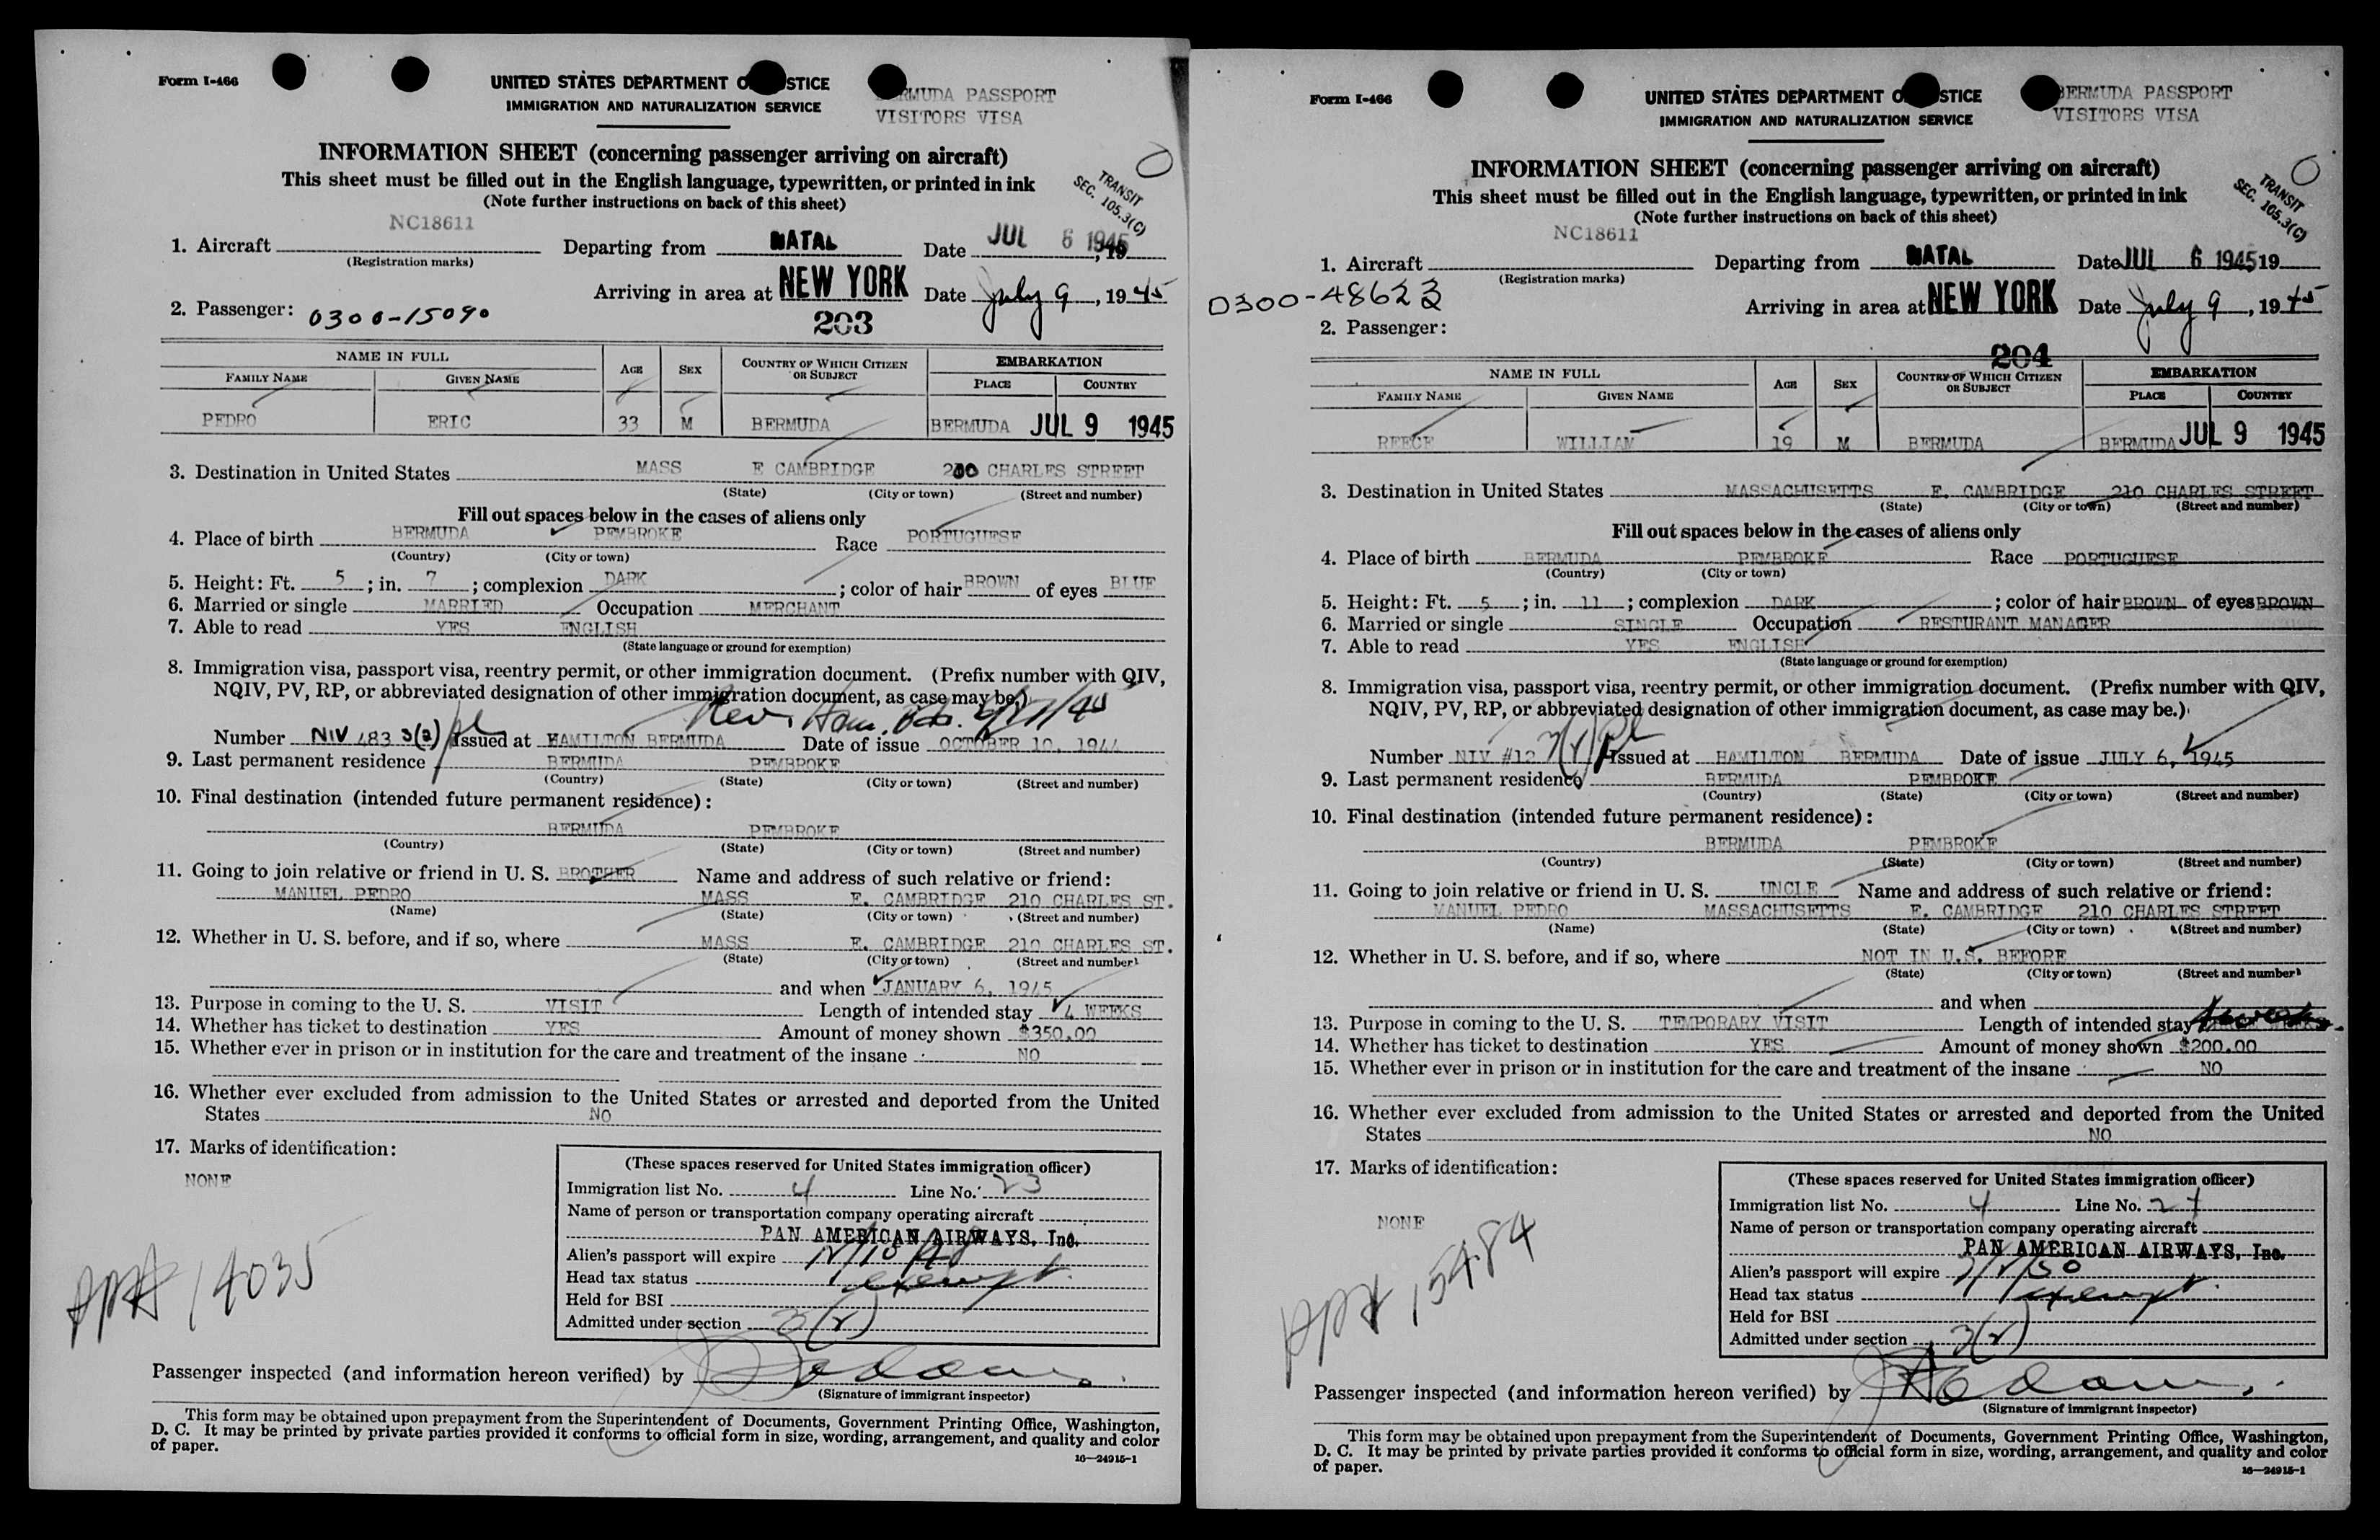 Form I-466
UNITED STATES DEPARTMENT O STICE
IMMIGRATION AND NATURALIZATION SERVICE
RMUDA PASSPORT
VISITORS VISA
INFORMATION SHEET (concerning passenger arriving on aircraft)
This sheet must be filled out in the English language, typewritten, or printed in ink
(Note further instructions on back of this sheet)
TRANSIT
SEC. 105.3(C)
NC18611
1. Aircraft Departing from NATAL Date JUL 6 1945, 19
(Registration marks)
Arriving in area at NEW YORK Date July 9, 1945
2. Passenger: 0300-15090
203
NAME IN FULL AGE SEX COUNTRY OF WHICH CITIZEN OR SUBJECT EMBARKATION
FAMILY NAME GIVEN NAME PLACE COUNTRY
PEDRO ERIC 33 M BERMUDA BERMUDA JUL 9 1945
3. Destination in United States MASS E CAMBRIDGE 210 CHARLES STREET
(State) (City or town) (Street and number)
Fill out spaces below in the cases of aliens only
4. Place of birth BERMUDA PEMBROKE Race PORTUGUESE
(Country) (City or town)
5. Height: Ft. 5; in. 7; complexion DARK; color of hair BROWN of eyes BLUE
6. Married or single MARRIED Occupation MERCHANT
7. Able to read YES ENGLISH
(State language or ground for exemption)
8. Immigration visa, passport visa, reentry permit, or other immigration document. (Prefix number with QIV,
NQIV, PV, RP, or abbreviated designation of other immigration document, as case may be.)
Number NIV 483 3(2) Issued at HAMILTON BERMUDA Date of issue OCTOBER 10, 1944
9. Last permanent residence BERMUDA PEMBROKE
(Country) (State) (City or town) (Street and number)
10. Final destination (intended future permanent residence):
BERMUDA PEMBROKE
(Country) (State) (City or town) (Street and number)
11. Going to join relative or friend in U. S. BROTHER Name and address of such relative or friend:
MANUEL PEDRO MASS E. CAMBRIDGE 210 CHARLES ST.
(Name) (State) (City or town) (Street and number)
12. Whether in U. S. before, and if so, where MASS E. CAMBRIDGE 210 CHARLES ST.
(State) (City or town) (Street and number)
and when JANUARY 6, 1945
13. Purpose in coming to the U. S. VISIT Length of intended stay 4 WEEKS
14. Whether has ticket to destination YES Amount of money shown $350.00
15. Whether ever in prison or in institution for the care and treatment of the insane NO
16. Whether ever excluded from admission to the United States or arrested and deported from the United
States NO
17. Marks of identification:
NONE
(These spaces reserved for United States immigration officer)
Immigration list No. 4 Line No. 23
Name of person or transportation company operating aircraft
PAN AMERICAN AIRWAYS, Inc.
Alien's passport will expire
Head tax status exempt
Held for BSI
Admitted under section 3(2)
PPT# 14035
Passenger inspected (and information hereon verified) by
(Signature of immigrant inspector)
This form may be obtained upon prepayment from the Superintendent of Documents, Government Printing Office, Washington,
D. C. It may be printed by private parties provided it conforms to official form in size, wording, arrangement, and quality and color
of paper.
16—24915-1
Form I-466
UNITED STATES DEPARTMENT O STICE
IMMIGRATION AND NATURALIZATION SERVICE
BERMUDA PASSPORT
VISITORS VISA
INFORMATION SHEET (concerning passenger arriving on aircraft)
This sheet must be filled out in the English language, typewritten, or printed in ink
(Note further instructions on back of this sheet)
TRANSIT
SEC. 105.3(C)
NC18611
1. Aircraft Departing from NATAL Date JUL 6 1945 19
(Registration marks)
0300-48623
Arriving in area at NEW YORK Date July 9, 1945
2. Passenger:
204
NAME IN FULL AGE SEX COUNTRY OF WHICH CITIZEN OR SUBJECT EMBARKATION
FAMILY NAME GIVEN NAME PLACE COUNTRY
REECE WILLIAM 19 M BERMUDA BERMUDA JUL 9 1945
3. Destination in United States MASSACHUSETTS E. CAMBRIDGE 210 CHARLES STREET
(State) (City or town) (Street and number)
Fill out spaces below in the cases of aliens only
4. Place of birth BERMUDA PEMBROKE Race PORTUGUESE
(Country) (City or town)
5. Height: Ft. 5; in. 11; complexion DARK; color of hair BROWN of eyes BROWN
6. Married or single SINGLE Occupation RESTURANT MANAGER
7. Able to read YES ENGLISH
(State language or ground for exemption)
8. Immigration visa, passport visa, reentry permit, or other immigration document. (Prefix number with QIV,
NQIV, PV, RP, or abbreviated designation of other immigration document, as case may be.)
Number NIV #12 Issued at HAMILTON BERMUDA Date of issue JULY 6, 1945
9. Last permanent residence BERMUDA PEMBROKE
(Country) (State) (City or town) (Street and number)
10. Final destination (intended future permanent residence):
BERMUDA PEMBROKE
(Country) (State) (City or town) (Street and number)
11. Going to join relative or friend in U. S. UNCLE Name and address of such relative or friend:
MANUEL PEDRO MASSACHUSETTS E. CAMBRIDGE 210 CHARLES STREET
(Name) (State) (City or town) (Street and number)
12. Whether in U. S. before, and if so, where NOT IN U.S. BEFORE
(State) (City or town) (Street and number)
and when
13. Purpose in coming to the U. S. TEMPORARY VISIT Length of intended stay
14. Whether has ticket to destination YES Amount of money shown $200.00
15. Whether ever in prison or in institution for the care and treatment of the insane NO
16. Whether ever excluded from admission to the United States or arrested and deported from the United
States NO
17. Marks of identification:
NONE
(These spaces reserved for United States immigration officer)
Immigration list No. 4 Line No. 24
Name of person or transportation company operating aircraft
PAN AMERICAN AIRWAYS, Inc.
Alien's passport will expire 7/2/50
Head tax status exempt
Held for BSI
Admitted under section 3(2)
PPT# 15484
Passenger inspected (and information hereon verified) by
(Signature of immigrant inspector)
This form may be obtained upon prepayment from the Superintendent of Documents, Government Printing Office, Washington,
D. C. It may be printed by private parties provided it conforms to official form in size, wording, arrangement, and quality and color
of paper.
16—24915-1